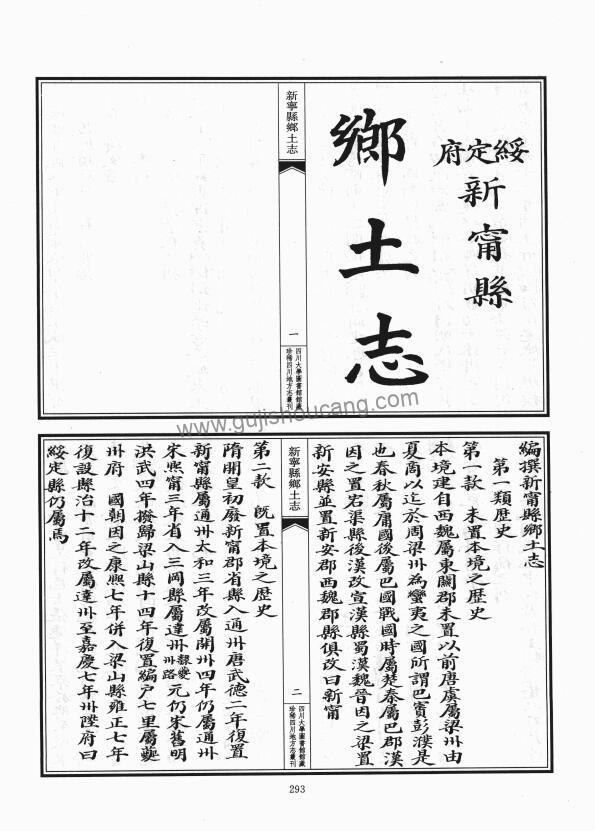 綏定府
新甯縣
鄉土志
新寧縣鄉土志
一
四川大學圖書館館藏
珍稀四川地方志叢刊
編撰新甯縣鄉土志
第一類歷史
第一款 未置本境之歷史
本境建自西魏屬東關郡未置以前唐虞屬梁州由
夏商以迄於周梁州為蠻夷之國所謂巴賨彭濮是
也春秋屬庸國後屬巴國戰國時屬楚秦屬巴郡漢
因之置宕渠縣後漢改宣漢縣蜀漢魏晉因之梁置
新安縣並置新安郡西魏郡縣俱改曰新甯
新寧縣鄉土志
二
四川大學圖書館館藏
珍稀四川地方志叢刊
第二款 既置本境之歷史
隋開皇初廢新甯郡省縣入通州唐武德二年復置
新甯縣屬通州太和三年改屬開州四年仍屬通州
宋熙甯三年省入三岡縣屬達州夔州路元仍宋舊明
洪武四年撥歸梁山縣十四年復置編戶七里屬夔
州府 國朝因之康熙七年併入梁山縣雍正七年
復設縣治十二年改屬達州至嘉慶七年州陞府曰
綏定縣仍屬焉
www.gujishoucang.com
293